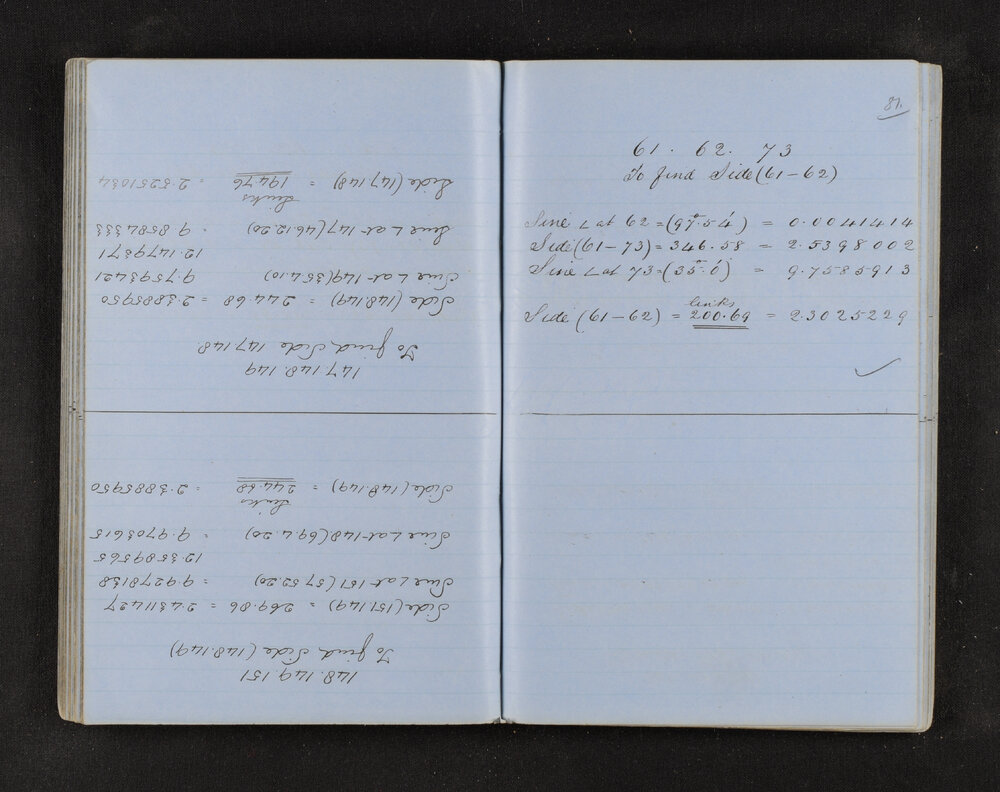 148.149.151
To find Side (148.149)
Side (151 149) = 269.86 = 2.4311427
Sine ∠ at 151 (57 52.20) = 9.9278138
12.3589565
Sine ∠ at 148 (69.4.20) = 9.9703615
Links
Side (148.149) = 244.68 = 2.3885950
147.148.149
To find Side 147.148
Side (148.149) = 244.68 = 2.3885950
Sine ∠ at 149 (35.4.10) 9.7593421
12.1479371
Sine ∠ at 147 (46.12.20) 9.8584333
Links
Side (147.148) = 194.76 =
81.
61 . 62 . 73
To find Side (61–62)
Sine ∠ at 62 = (97°.54′) = 0.0041414
Side (61–73) = 346.58 = 2.5398002
Sine ∠ at 73 = (35°.0′) = 9.7585913
links
Side (61–62) = 200.69 = 2.3025229